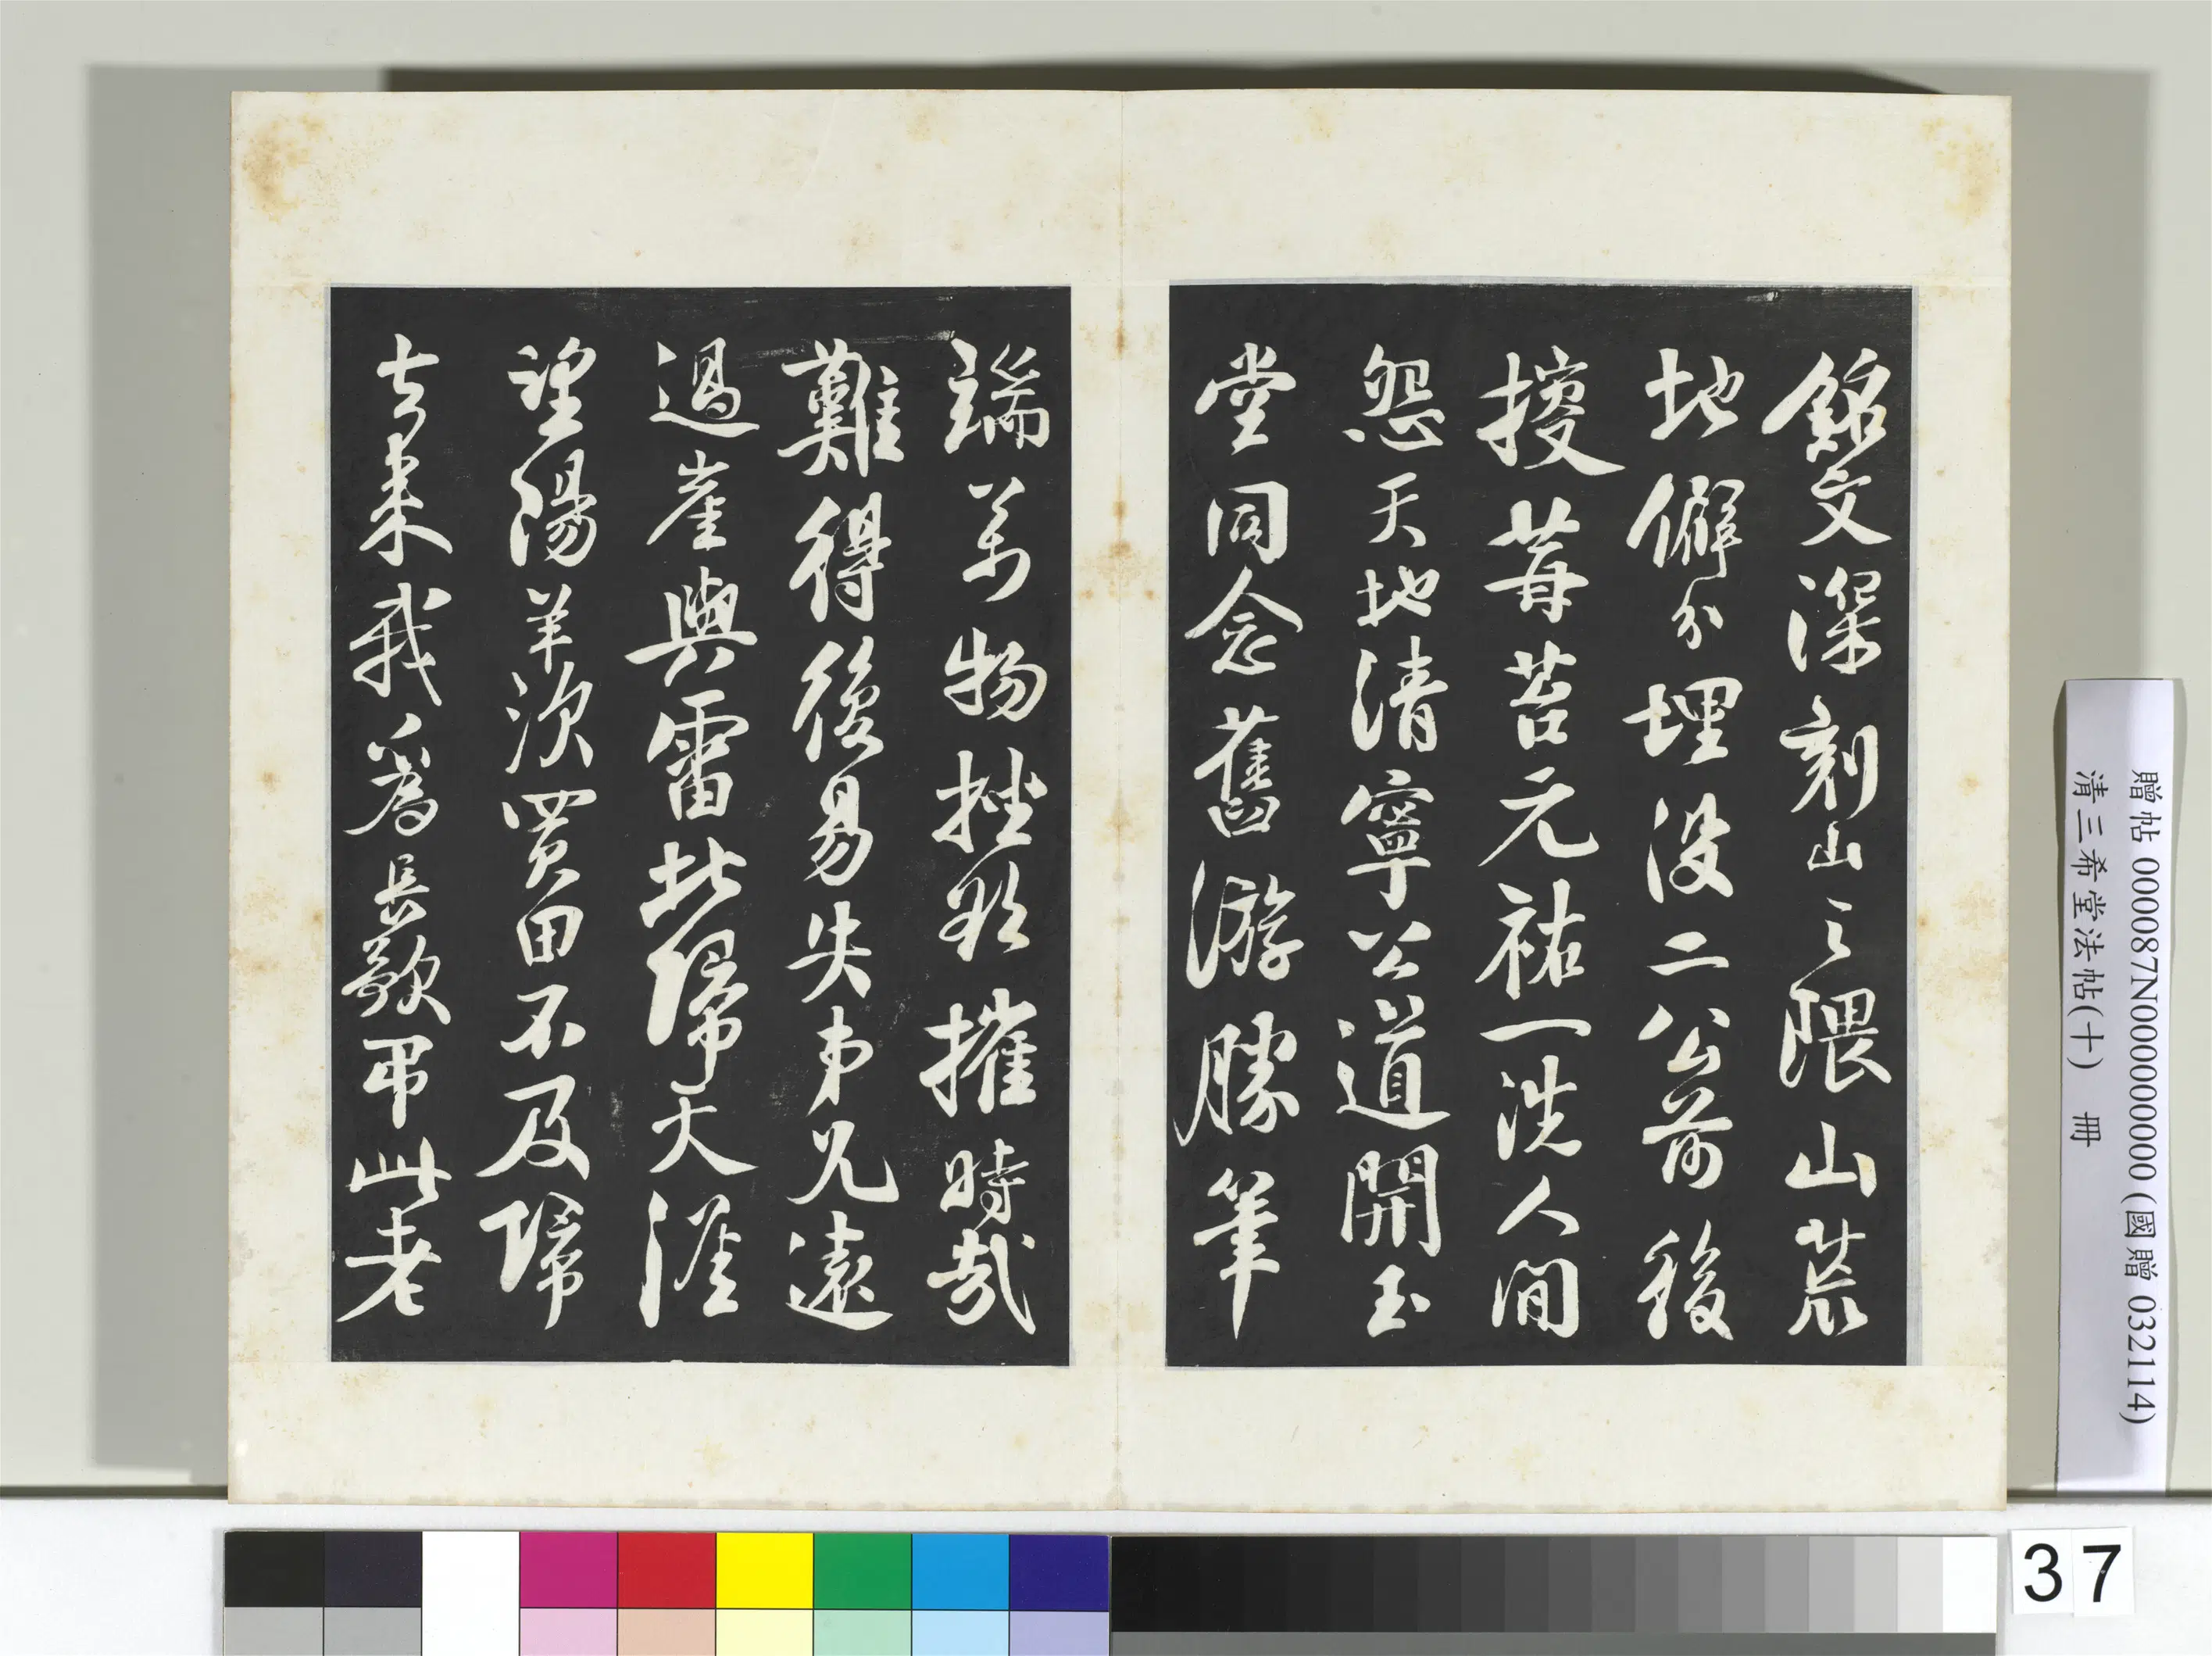 銘文深刻山之隈山荒
地僻分埋没二公前後
搜莓苔元祐一洗人間
怨天地清寧公道開玉
堂同念舊游勝筆
端萬物挫欲摧時哉
難得後易失弟兄遠
過崖與雷北歸大淮
望陽羨買田不及歸
去来我為長歌弔此老
贈帖 000087N000000000 (國贈 032114)
清三希堂法帖(十) 冊
37